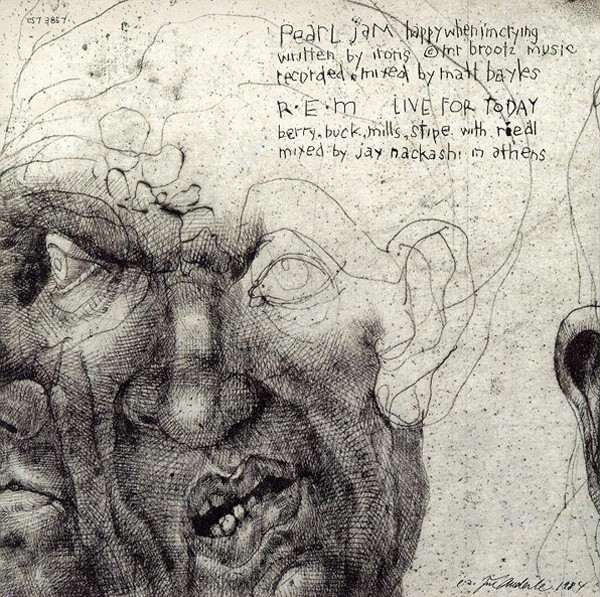 cs7 3867
pearl jam happywhenimcrying
written by irons © mr brootz music
recorded & mixed by matt bayles
R.E.M LIVE FOR TODAY
berry, buck, mills, stipe with rieal
mixed by jay nackashi in athens
1984